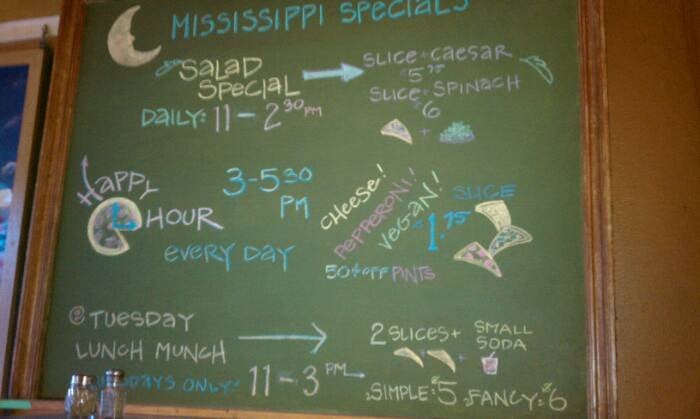 MISSISSIPPI SPECIALS
SALAD
SPECIAL
DAILY: 11 - 2 30 PM
SLICE + CAESAR
$5 75
SLICE + SPINACH
$6
+
HAPPY
HOUR
3-5 30
PM
EVERY DAY
CHEESE!
PEPPERONI!
VEGAN!
SLICE
1.75
50¢ OFF PINTS
@ TUESDAY
LUNCH MUNCH
DAYS ONLY:
11 - 3 PM
2 SLICES +
SMALL
SODA
+
SIMPLE: $5 FANCY: $6